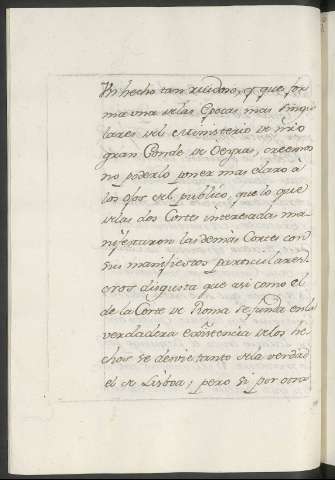 Un hecho tan ruidoso, y que for
ma una de las Epocas mas singu
lares del Ministerio de nrõ
gran Conde de Oeyras, creemos
no poderlo poner mas claro à
los ojos del publico, que lo que
las dos Cortes interesadas ma-
nifestaron las demàs Cortes con
sus manifiestos particulares.
disgusta que asi como el
de la Corte de Roma se funda en la
verdadera existencia de los he
chos se desvie tanto de la verdad
el de Lisboa; pero si por otra